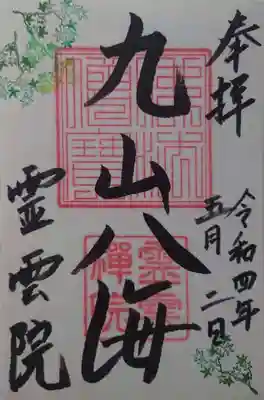 奉拝
令和四年
五月二日
九山八海
佛法僧寶
霊雲禅院
霊雲院